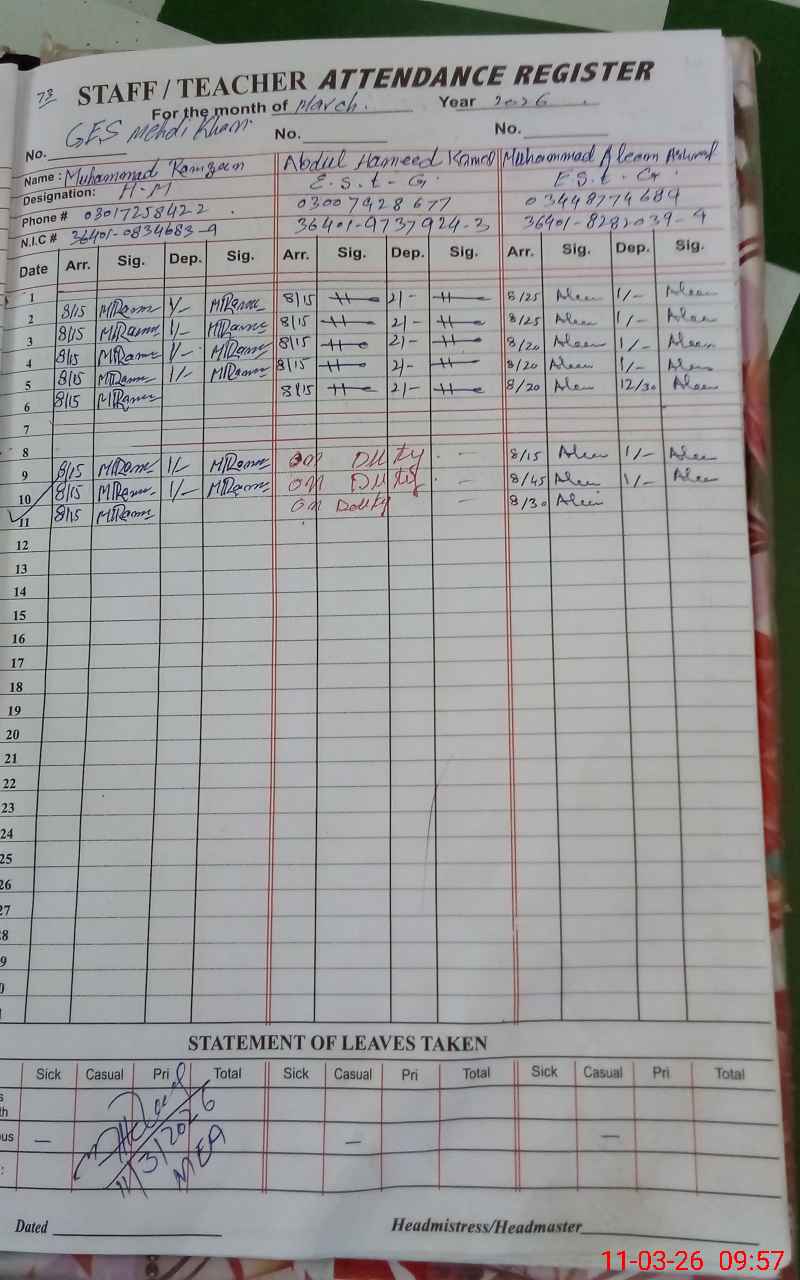 73
STAFF / TEACHER ATTENDANCE REGISTER
For the month of March. Year 2026
No. GES Mehdi Khan. No. No.
Name : Muhammad Ramzan Abdul Hameed Muhammad Aleem
Designation: H-M E.S.t - G. E S.t - G.
Phone # 03017258422 03007928677 03448774689
N.I.C # 36401-0834683-9 36401-9737924-3 36401-8282039-9
Date Arr. Sig. Dep. Sig. Arr. Sig. Dep. Sig. Arr. Sig. Dep. Sig.
1
2 8/15 MRamz 1/- MRamz 8/15 2/- 8/25 Aleem 1/- Aleem
3 8/15 MRamz 1/- MRamz 8/15 2/- 8/25 Aleem 1/- Aleem
4 8/15 MRamz 1/- MRamz 8/15 2/- 8/20 Aleem 1/- Aleem
5 8/15 MRamz 1/- MRamz 8/15 2/- 8/20 Aleem 1/- Aleem
6 8/15 MRamz 8/15 2/- 8/20 Aleem 12/30 Aleem
7
8
9 8/15 MRamz 1/- MRamz on Duty - - 8/15 Aleem 1/- Aleem
10 8/15 MRamz 1/- MRamz on Duty - - 8/45 Aleem 1/- Aleem
11 8/15 MRamz on Douty - 8/30 Aleem
12
13
14
15
16
17
18
19
20
21
22
23
24
25
26
27
8
9
0
STATEMENT OF LEAVES TAKEN
Sick Casual Pri Total Sick Casual Pri Total Sick Casual Pri Total
s
th
ous — — —
:
11/3/2026
MEA
Dated Headmistress/Headmaster
11-03-26 09:57